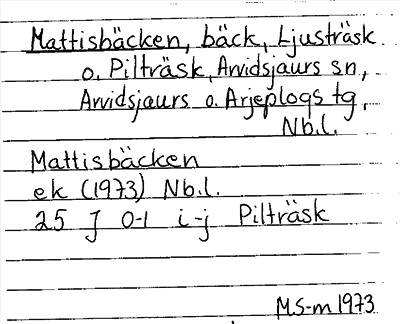 Mattisbäcken, bäck, Ljusträsk
o. Pilträsk, Arvidsjaurs sn,
Arvidsjaurs o. Arjeplogs tg,
Nb.l.
Mattisbäcken
ek (1973) Nb.l.
25 J 0-1 i-j Pilträsk
MS-m 1973